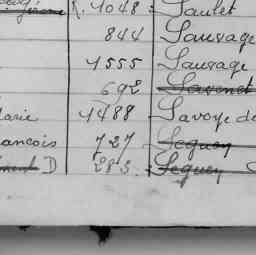 R. 1048 : Saulet
844 Sauvage
1555 Sauvage
692 Savenet
arie 1488 Savoye de
ancois 727 Seguey
D 283 : Seguey